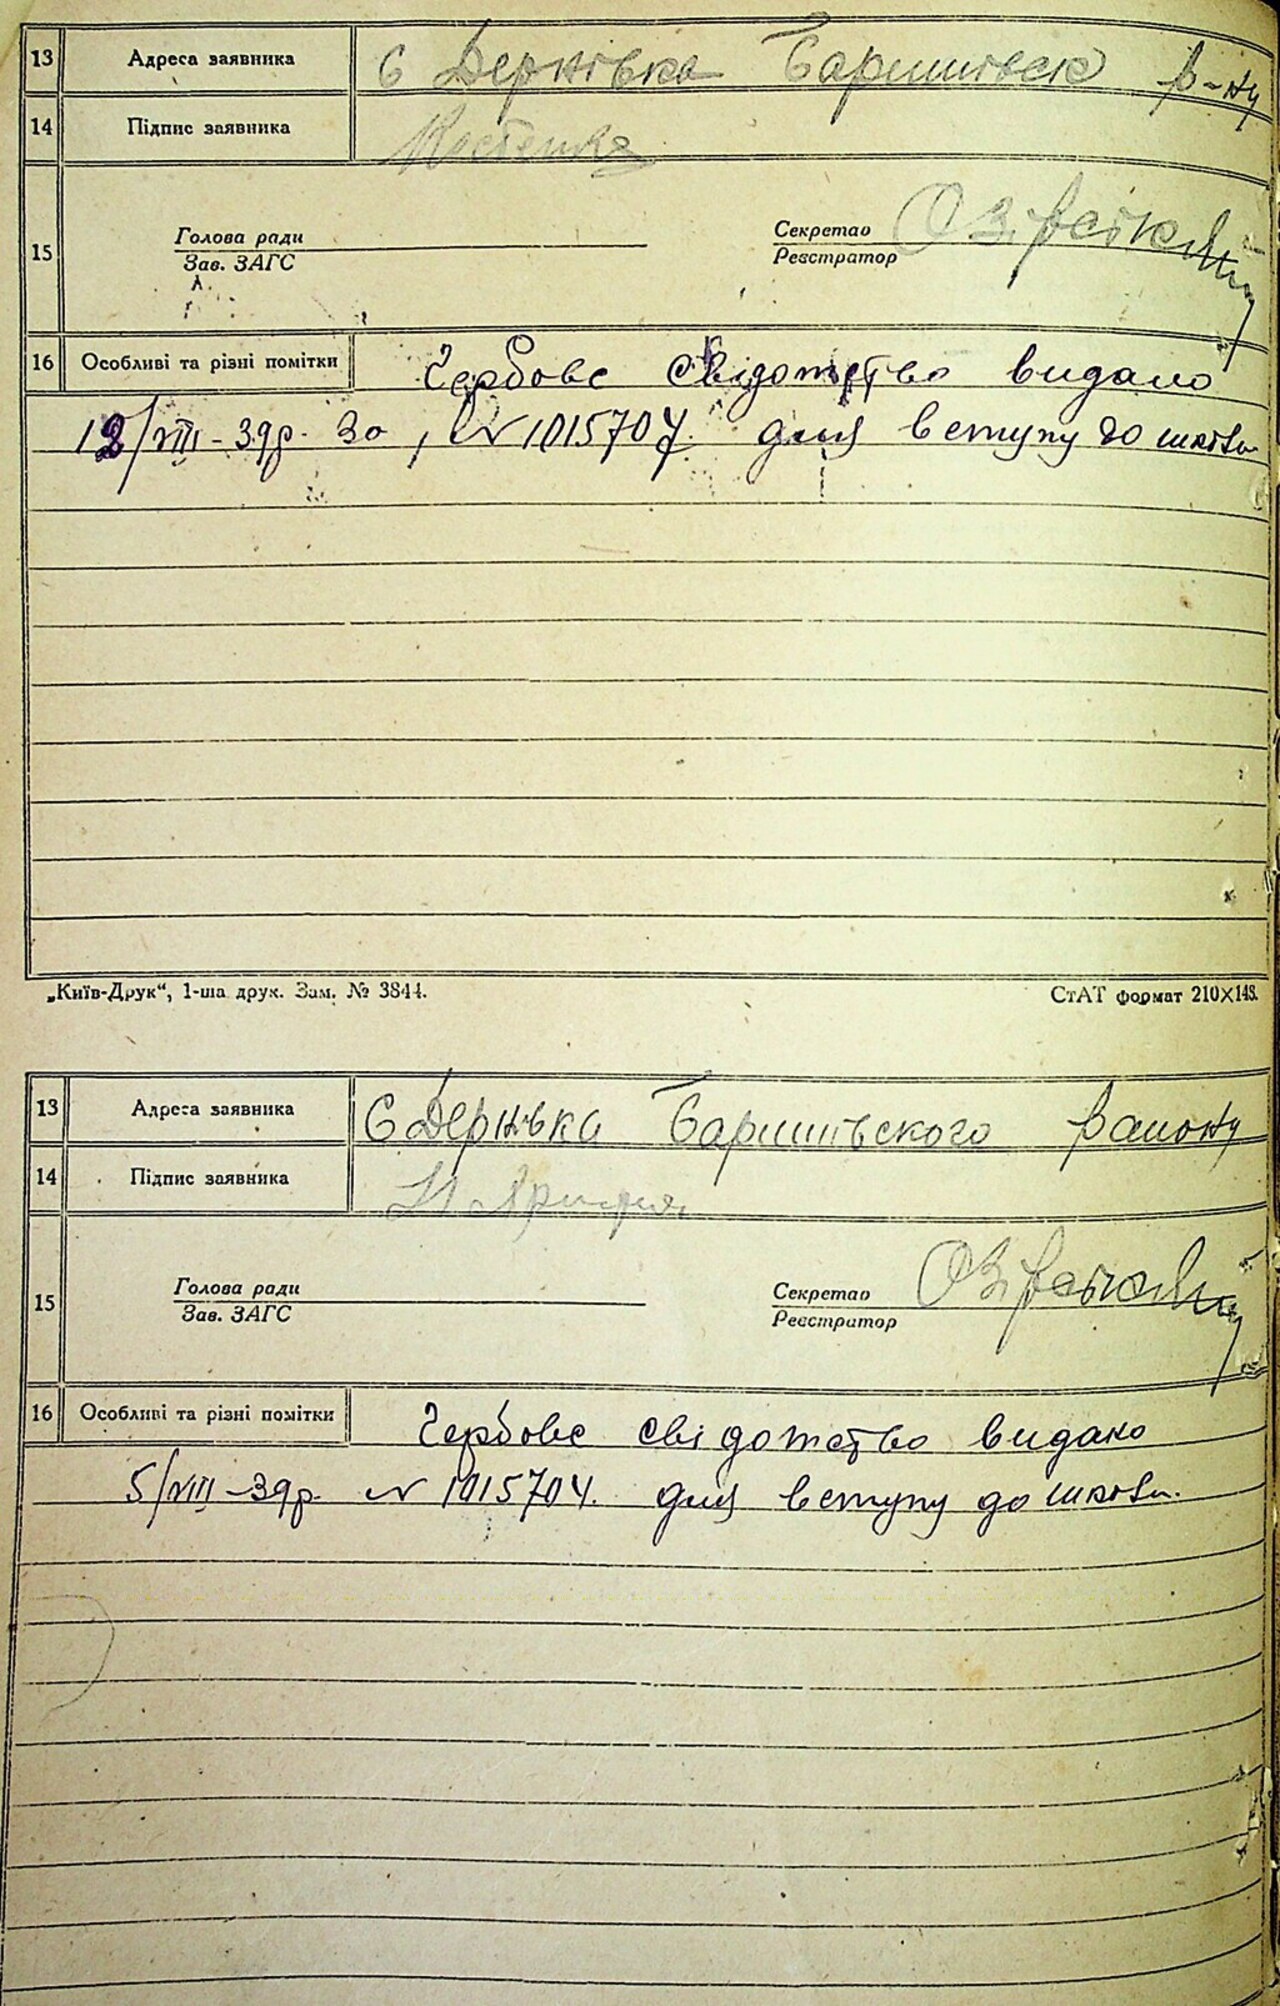 13 Адреса заявника С Дернівка Баришівськ р-ну
14 Підпис заявника Костенко
15 Голова ради Секретар
Зав. ЗАГС Реєстратор
16 Особливі та різні помітки Гербове свідотство видано
12/VIII-39р. за, № 1015707. для вступу до школи
„Київ-Друк“, 1-ша друк. Зам. № 3844. СтАТ формат 210×148.
13 Адреса заявника С Дернівка Баришівського району
14 Підпис заявника
15 Голова ради Секретар
Зав. ЗАГС Реєстратор
16 Особливі та різні помітки Гербове свідотство видано
5/VIII-39р. № 1015704. для вступу до школи.